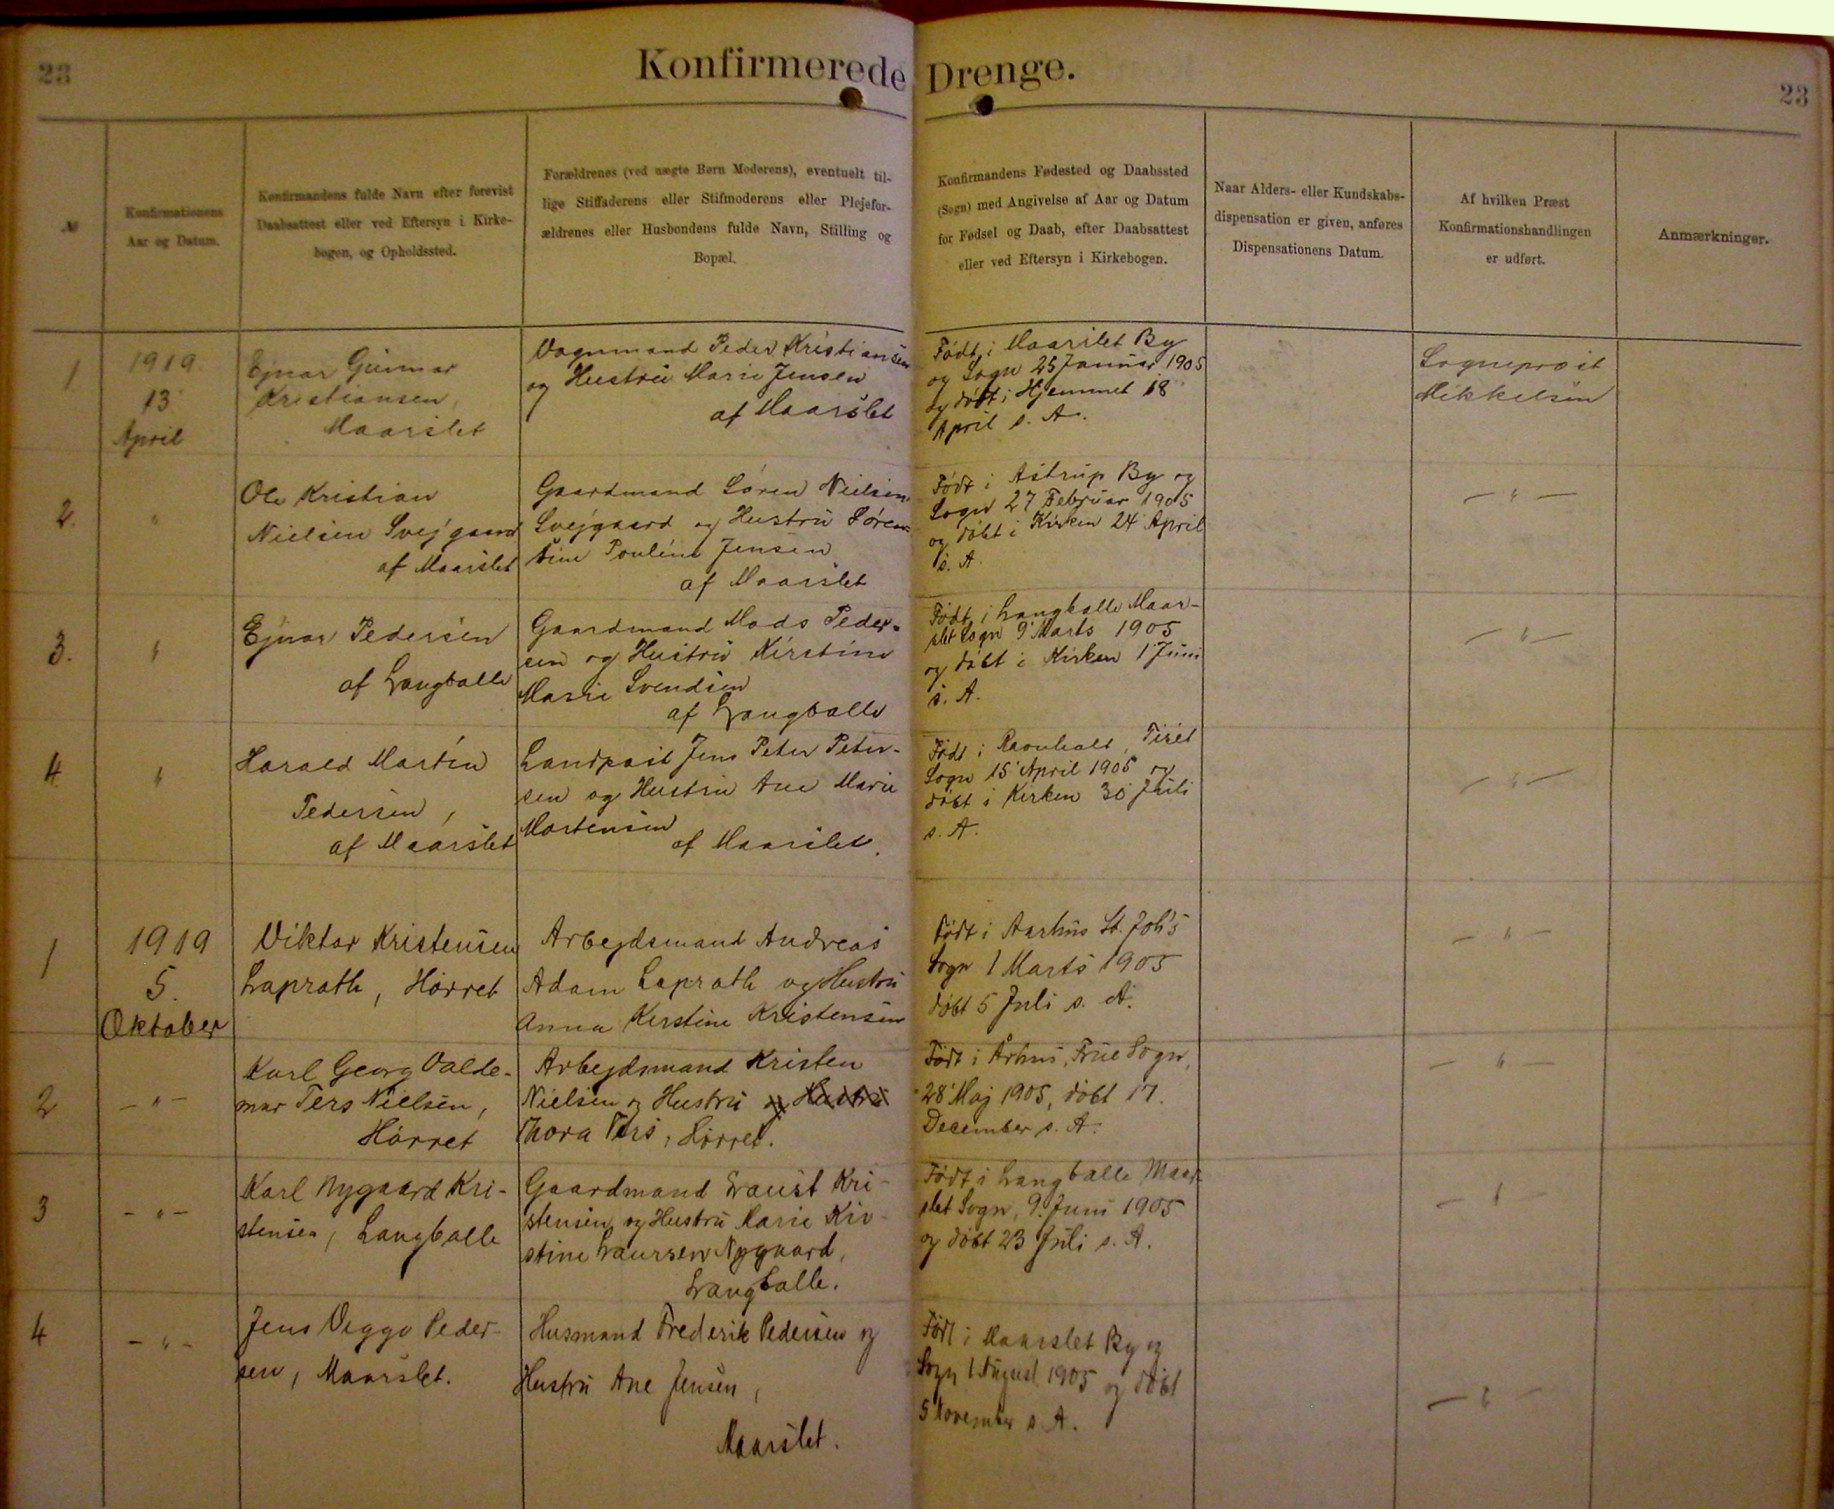 23
Konfirmerede Drenge.
23
№
Konfirmationens
Aar og Datum.
Konfirmandens fulde Navn efter forevist
Daabsattest eller ved Eftersyn i Kirke-
bogen, og Opholdssted.
Forældrenes (ved uægte Børn Moderens), eventuelt til-
lige Stiffaderens eller Stifmoderens eller Plejefor-
ældrenes eller Husbondens fulde Navn, Stilling og
Bopæl.
Konfirmandens Fødested og Daabssted
(Sogn) med Angivelse af Aar og Datum
for Fødsel og Daab, efter Daabsattest
eller ved Eftersyn i Kirkebogen.
Naar Alders- eller Kundskabs-
dispensation er given, anføres
Dispensationens Datum.
Af hvilken Præst
Konfirmationshandlingen
er udført.
Anmærkninger.
1
1919
13
April
Ejnar Gunnar
Kristiansen,
Maarslet
Vognmand Peder Kristiansen
og Hustru Marie Jensen
af Maarslet
Født i Maarslet By
og Sogn 25 Januar 1905
og døbt i Hjemmet 18
April s. A.
Sognepræst
Mikkelsen
2.
"
Ole Kristian
Nielsen Svejgaard
af Maarslet
Gaardmand Søren Nielsen
Svejgaard og Hustru Søren=
sine Pouline Jensen
af Maarslet
Født i Astrup By og
Sogn 27 Februar 1905
og døbt i Kirken 24 April
s. A.
— " —
3.
"
Ejnar Pedersen
af Langballe
Gaardmand Mads Peder=
sen og Hustru Kirstine
Marie Svendsen
af Langballe
Født i Langballe Maar-
slet Sogn 9 Marts 1905
og døbt i Kirken 1 Juni
s. A.
— " —
4
"
Harald Martin
Pedersen,
af Maarslet
Landpost Jens Peter Peter-
sen og Hustru Ane Marie
Mortensen
af Maarslet.
Født i Ravnholt, Tiset
Sogn 15 April 1905 og
døbt i Kirken 30 Juli
s. A.
— " —
1
1919
5.
Oktober
Viktor Kristensen
Laprath, Hørret
Arbejdsmand Andreas
Adam Laprath og Hustru
Anna Kirstine Kristensen
Født i Aarhus St. Joh's
Sogn 1 Marts 1905
døbt 5 Juli s. A.
— " —
2
— " —
Karl Georg Valde-
mar Ters Nielsen,
Hørret
Arbejdsmand Kristen
Nielsen og Hustru og Hustru
Thora Ters, Hørret.
Født i Århus, Frue Sogn,
28 Maj 1905, døbt 17.
December s. A.
— " —
3
— " —
Karl Nygaard Kri-
stensen, Langballe
Gaardmand Laust Kri-
stensen og Hustru Marie Kir-
stine Laursen Nygaard,
Langballe.
Født i Langballe Maar-
slet Sogn, 9. Juni 1905
og døbt 23 Juli s. A.
— " —
4
— " —
Jens Viggo Peder-
sen, Maarslet.
Husmand Frederik Pedersen og
Hustru Ane Jensen,
Maarslet.
Født i Maarslet By og
Sogn 1 August 1905 og døbt
5 November s. A.
— " —